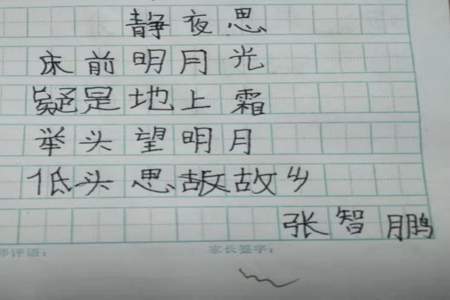 静夜思
床前明月光
疑是地上霜
举头望明月
低头思故故乡
张智鹏
师评语：
家长签字：